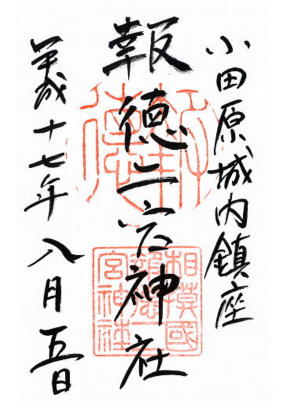 小田原城内鎮座
報徳二宮神社
平成十七年 八月五日
相模國
報徳二
宮神社